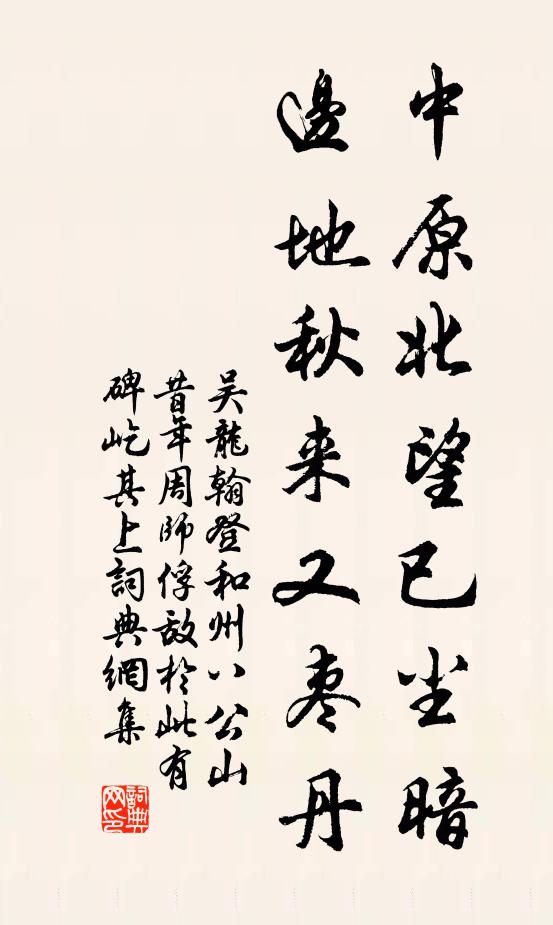 中原北望已尘暗
邊地秋来又枣丹
吴龍翰登和州八公山
昔年周師俘敌於此有
碑屹其上詞典網集
詞典网印